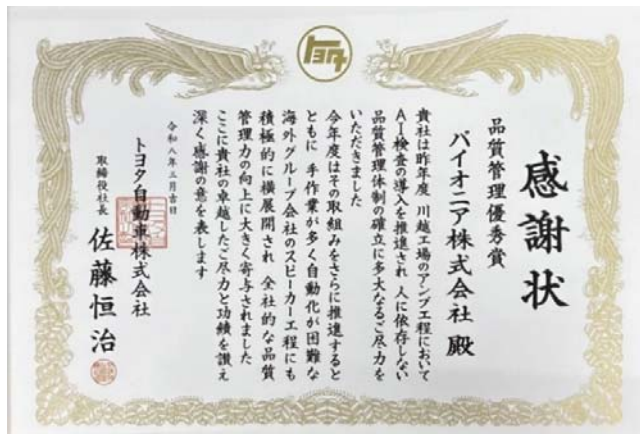 トヨタ
感謝状
品質管理優秀賞
パイオニア株式会社 殿
貴社は昨年度 川越工場のアンプ工程において
AI検査の導入を推進され 人に依存しない
品質管理体制の確立に多大なるご尽力を
いただきました
今年度はその取組みをさらに推進すると
ともに 手作業が多く自動化が困難な
海外グループ会社のスピーカー工程にも
積極的に横展開され 全社的な品質
管理力の向上に大きく寄与されました
ここに貴社の卓越したご尽力と功績を讃え
深く感謝の意を表します
令和八年三月吉日
トヨタ自動車株式会社
取締役社長 佐藤恒治